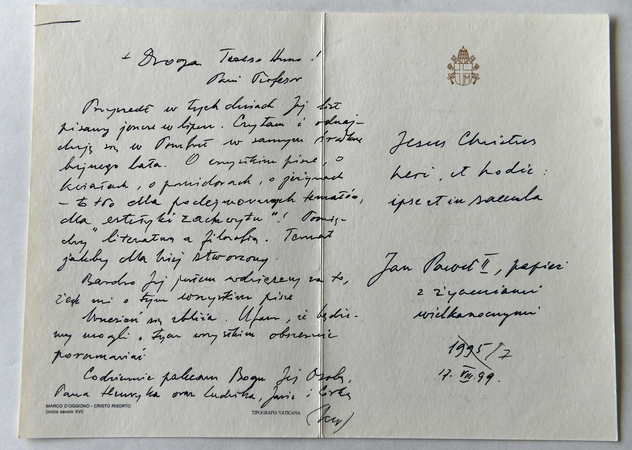 + Droga Tereso Anno!
Pani Profesor
Przyszedł w tych dniach Jej list
pisany jeszcze w lipcu. Czytam i
się w w samym środku
bujnego lata. O wszystkim pisze, o
kwiatach, o pomidorach, o jeżynach
- to dla podejmowanych tematów,
dla "estetyki zachwytu"!
"literaturą a filozofią. Temat
jakby dla Niej stworzony.
Bardzo Jej jestem wdzięczny za to,
że mi o tym wszystkim pisze
Wrzesień się zbliża. Ufam, że będzie-
my mogli o tym wszystkim obszernie
porozmawiać
Codziennie polecam Bogu Jej Osobę,
Pana Henryka oraz Ludwika, Jasia i
MARCO D'OGGIONO - CRISTO RISORTO
(inizio secolo XVI)
TIPOGRAFIA VATICANA
Jesus Christus
heri, et hodie:
ipse et in saecula
Jan Paweł II, papież
z życzeniami
wielkanocnymi
1995/7
17. VIII 99.